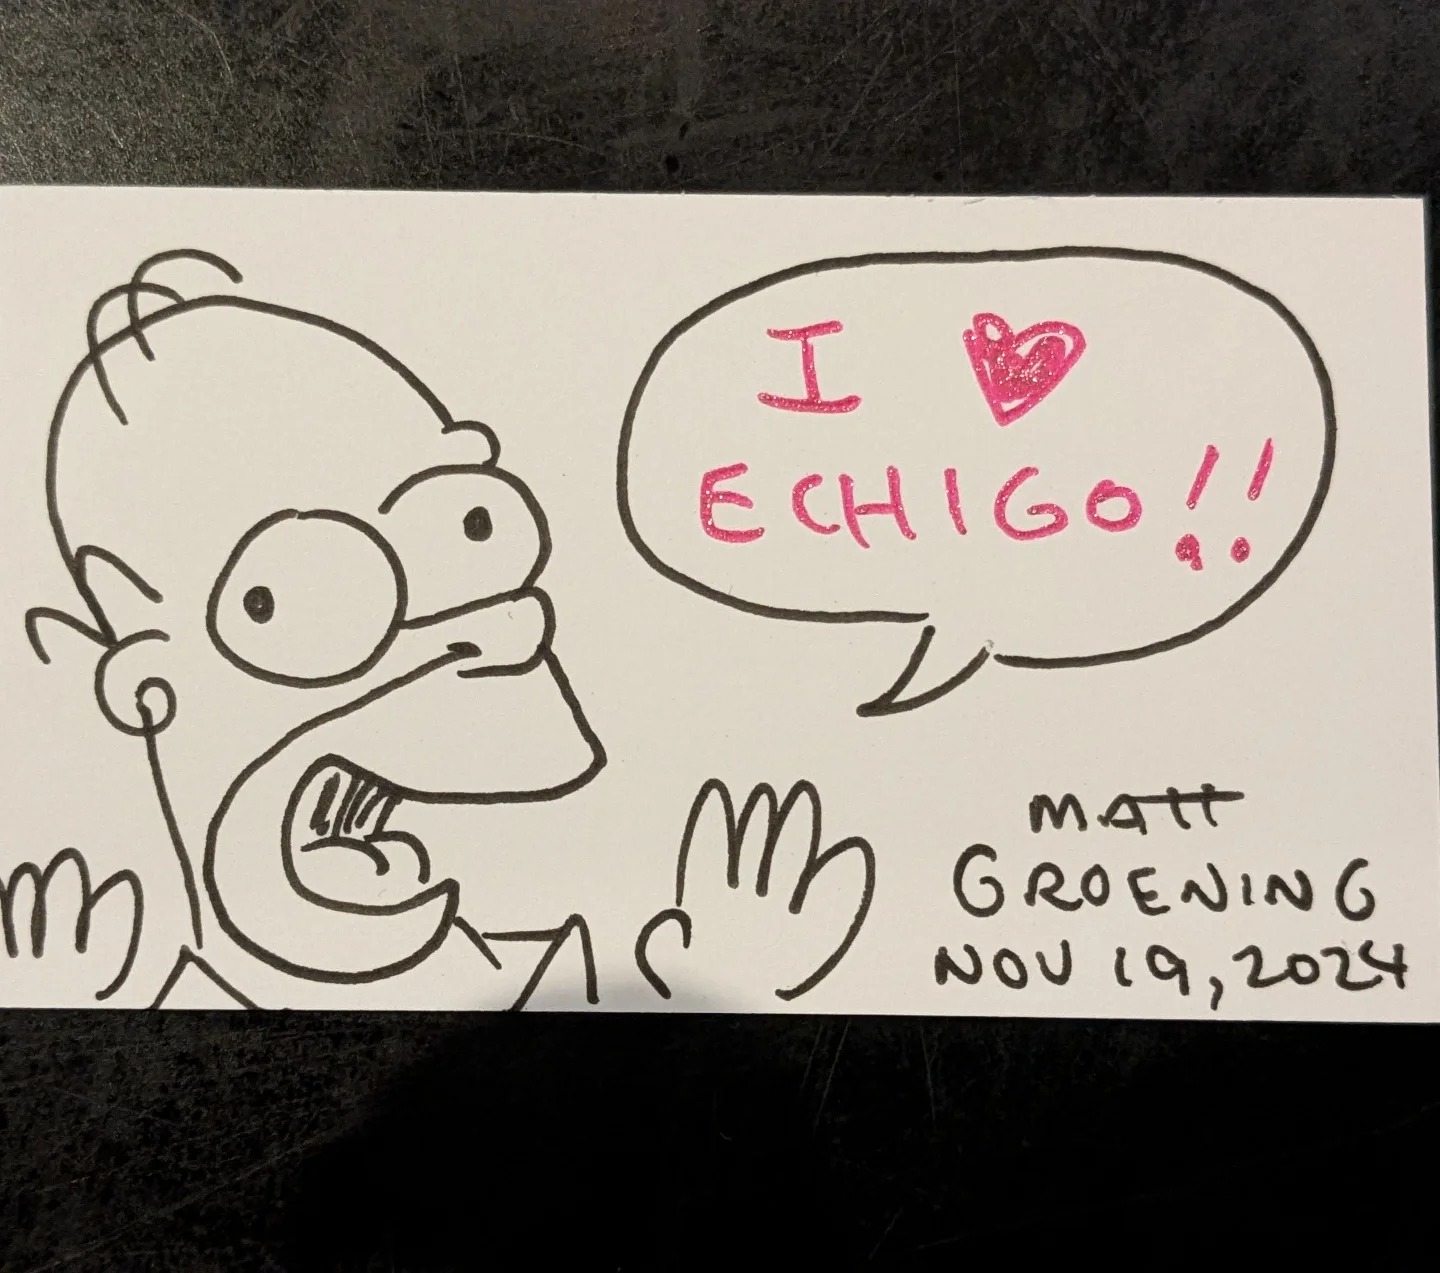 I ♥
ECHIGO!!
MATT
GROENING
NOV 19, 2024